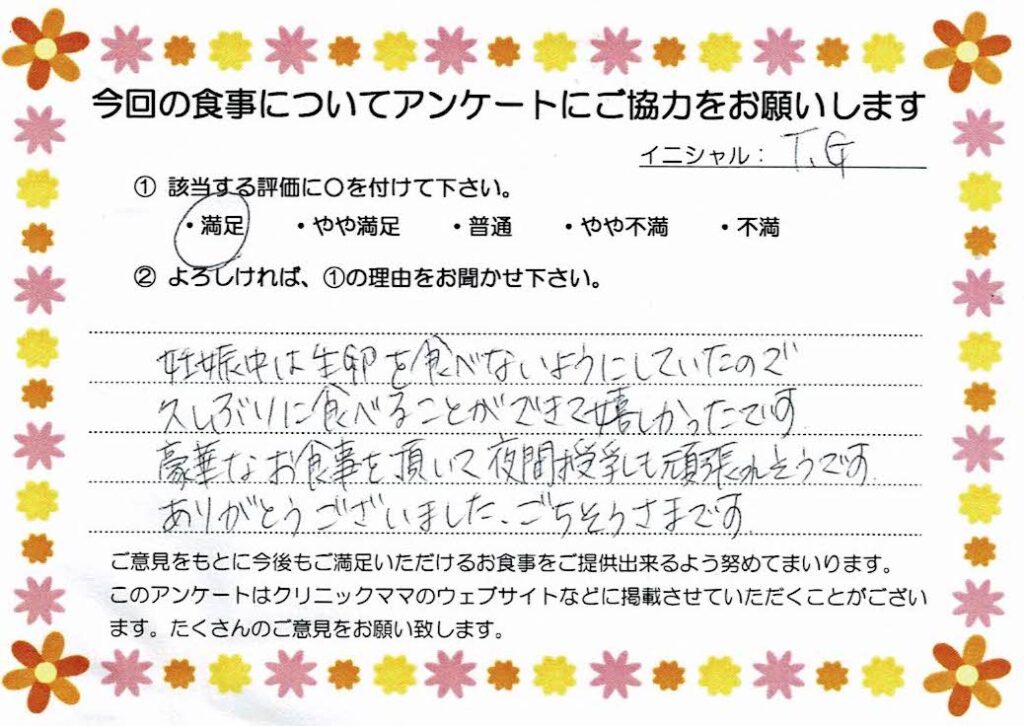 今回の食事についてアンケートにご協力をお願いします
イニシャル： T.G
① 該当する評価に〇を付けて下さい。
・満足 ・やや満足 ・普通 ・やや不満 ・不満
② よろしければ、①の理由をお聞かせ下さい。
妊娠中は生卵を食べないようにしていたので
久しぶりに食べることができて嬉しかったです
豪華なお食事を頂いて夜間授乳も頑張れそうです.
ありがとうございました、ごちそうさまです
ご意見をもとに今後もご満足いただけるお食事をご提供出来るよう努めてまいります。
このアンケートはクリニックママのウェブサイトなどに掲載させていただくことがござい
ます。たくさんのご意見をお願い致します。